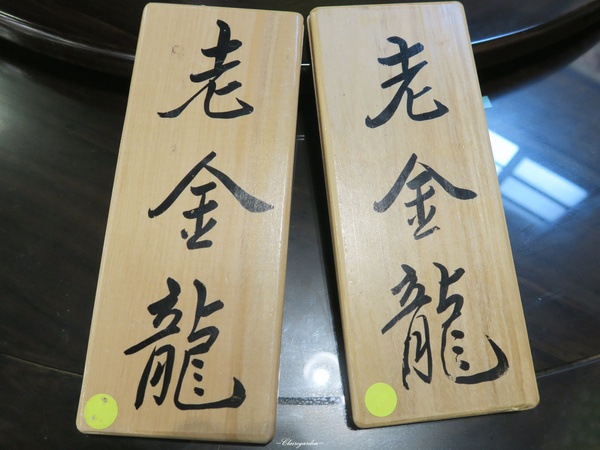 老金龍
老金龍
~Clairegarden~